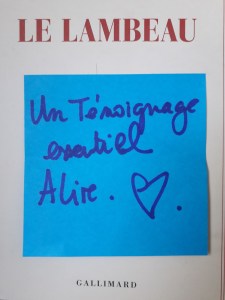 LE LAMBEAU
Un Témoignage
essentiel
A lire.
GALLIMARD